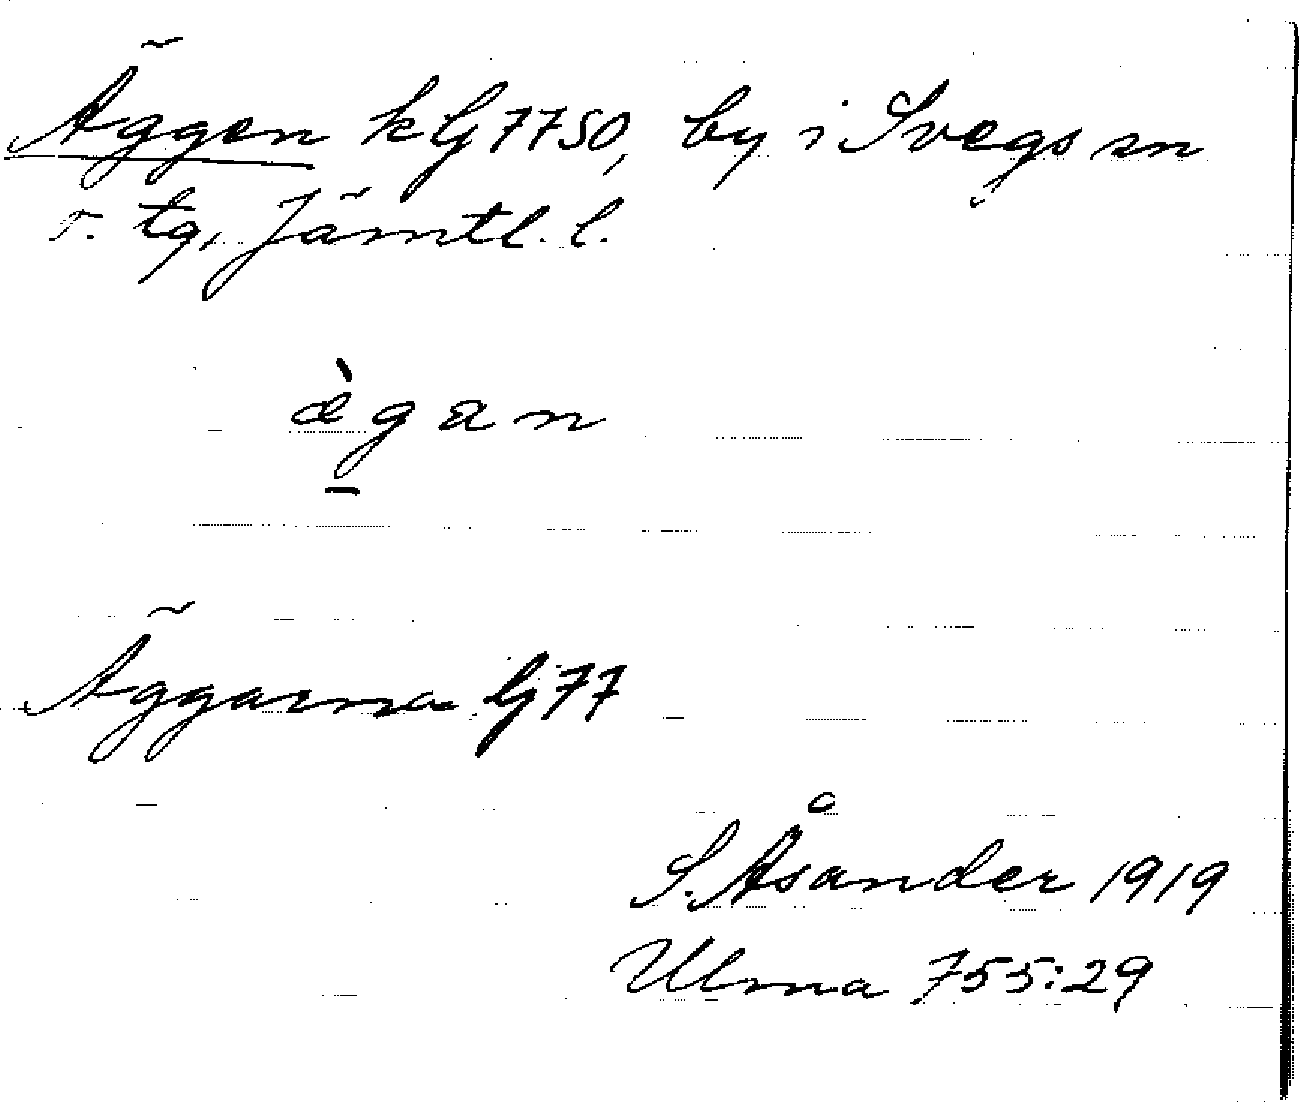 Äggen kG7750, by i Svegs sn
o. tg, Jämtl. l.
ǽgan
Äggarna G77
S. Åsander 1919
Ulma 755:29